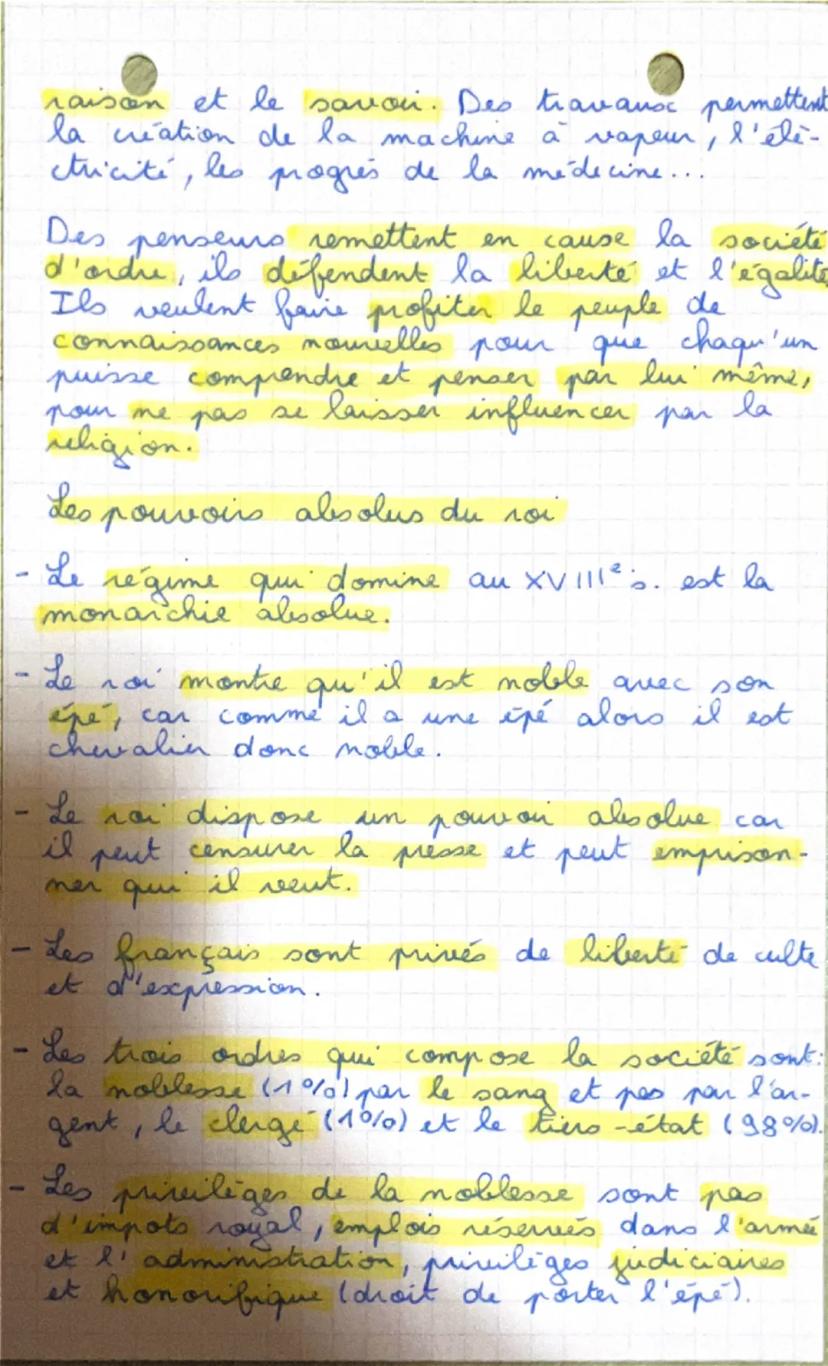 raison et le savoir. Des travaux permettent
la création de la machine à vapeur, l'élé-
ctricité, les progrès de la médecine...
Des penseurs remettent en cause la société
d'ordre, ils défendent la liberté et l'égalité
Ils veulent faire profiter le peuple de
connaissances nouvelles pour que chaqu'un
puisse comprendre et penser par lui même,
pour ne pas se laisser influencer par la
religion.
Les pouvoirs absolus du roi
- Le régime qui domine au XVIIIe s. est la
monarchie absolue.
- Le roi montre qu'il est noble avec son
épé, car comme il a une épé alors il est
chevalier donc noble.
- Le roi dispose un pouvoir absolue car
il peut censurer la presse et peut emprison-
ner qui il veut.
- Les français sont privés de liberté de culte
et d'expression.
- Les trois ordres qui compose la société sont:
la noblesse (1%) par le sang et pas par l'ar-
gent, le clergé (1%) et le tiers-état (98%).
- Les privilèges de la noblesse sont pas
d'impots royal, emplois réservés dans l'armée
et l'administration, privilèges judiciaires
et honorifique (droit de porter l'épé).